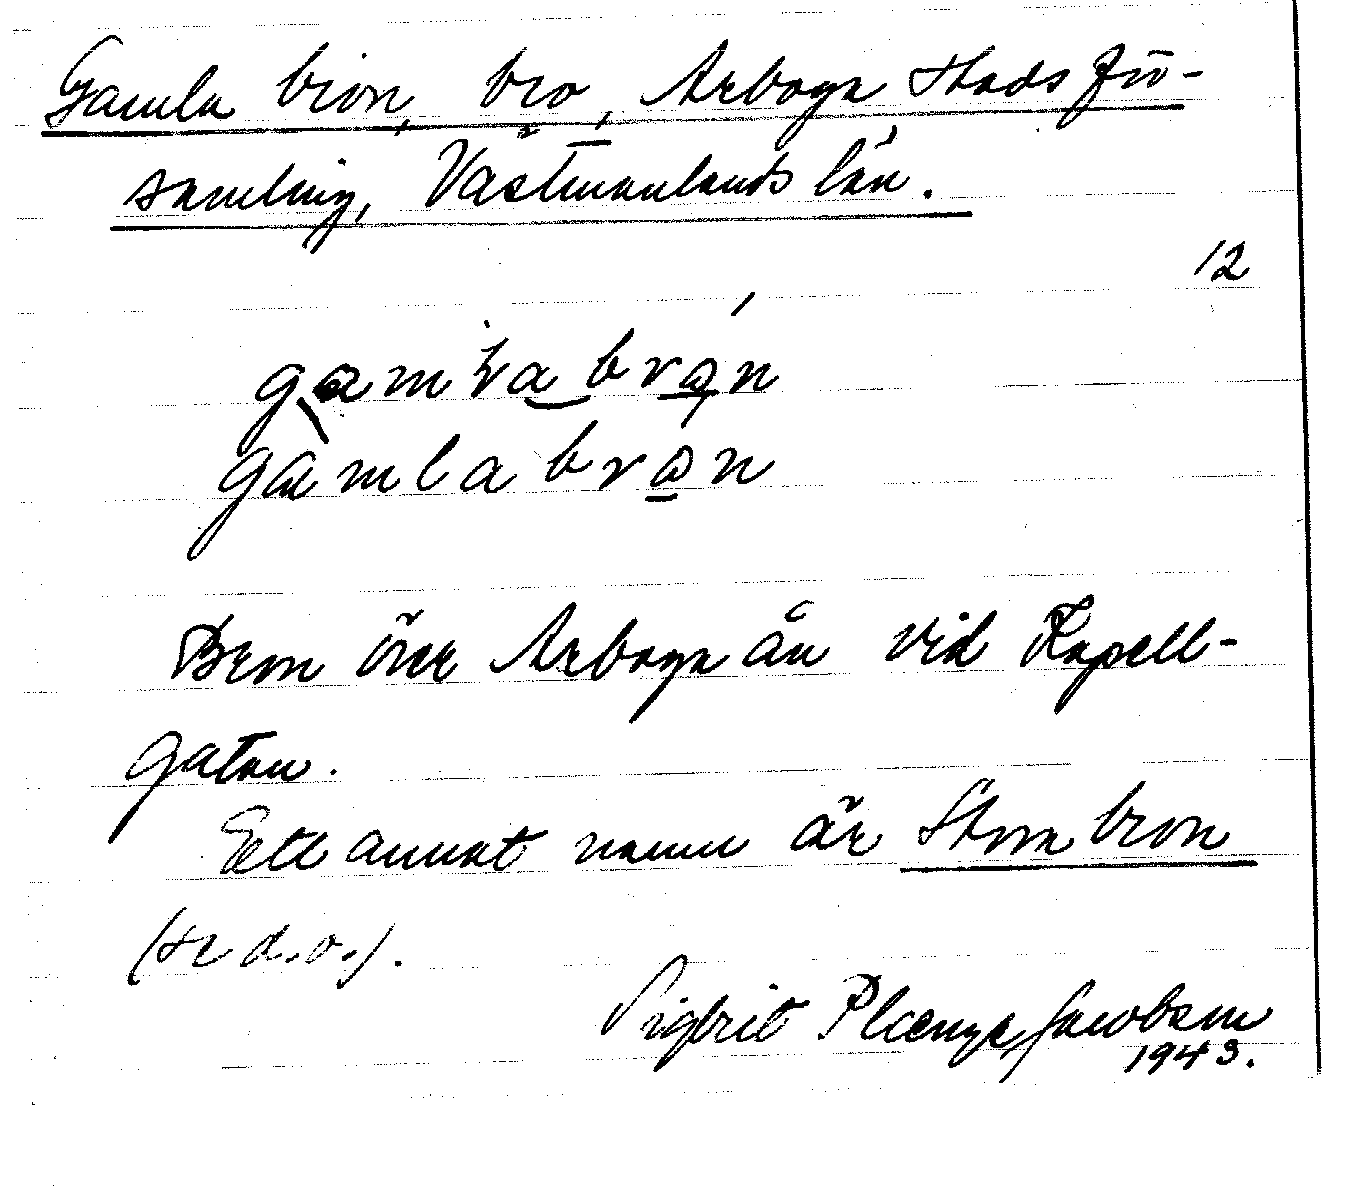 Gamla bron, bro, Arboga Stadsför-
samling, Västmanlands län.
12
gamla brон
gamla bron
Bron över Arbogaån vid Kapell-
gatan.
Ett annat namn är Stora bron
(se d.o.).
Sigbrit Plænge Jacobson
1943.